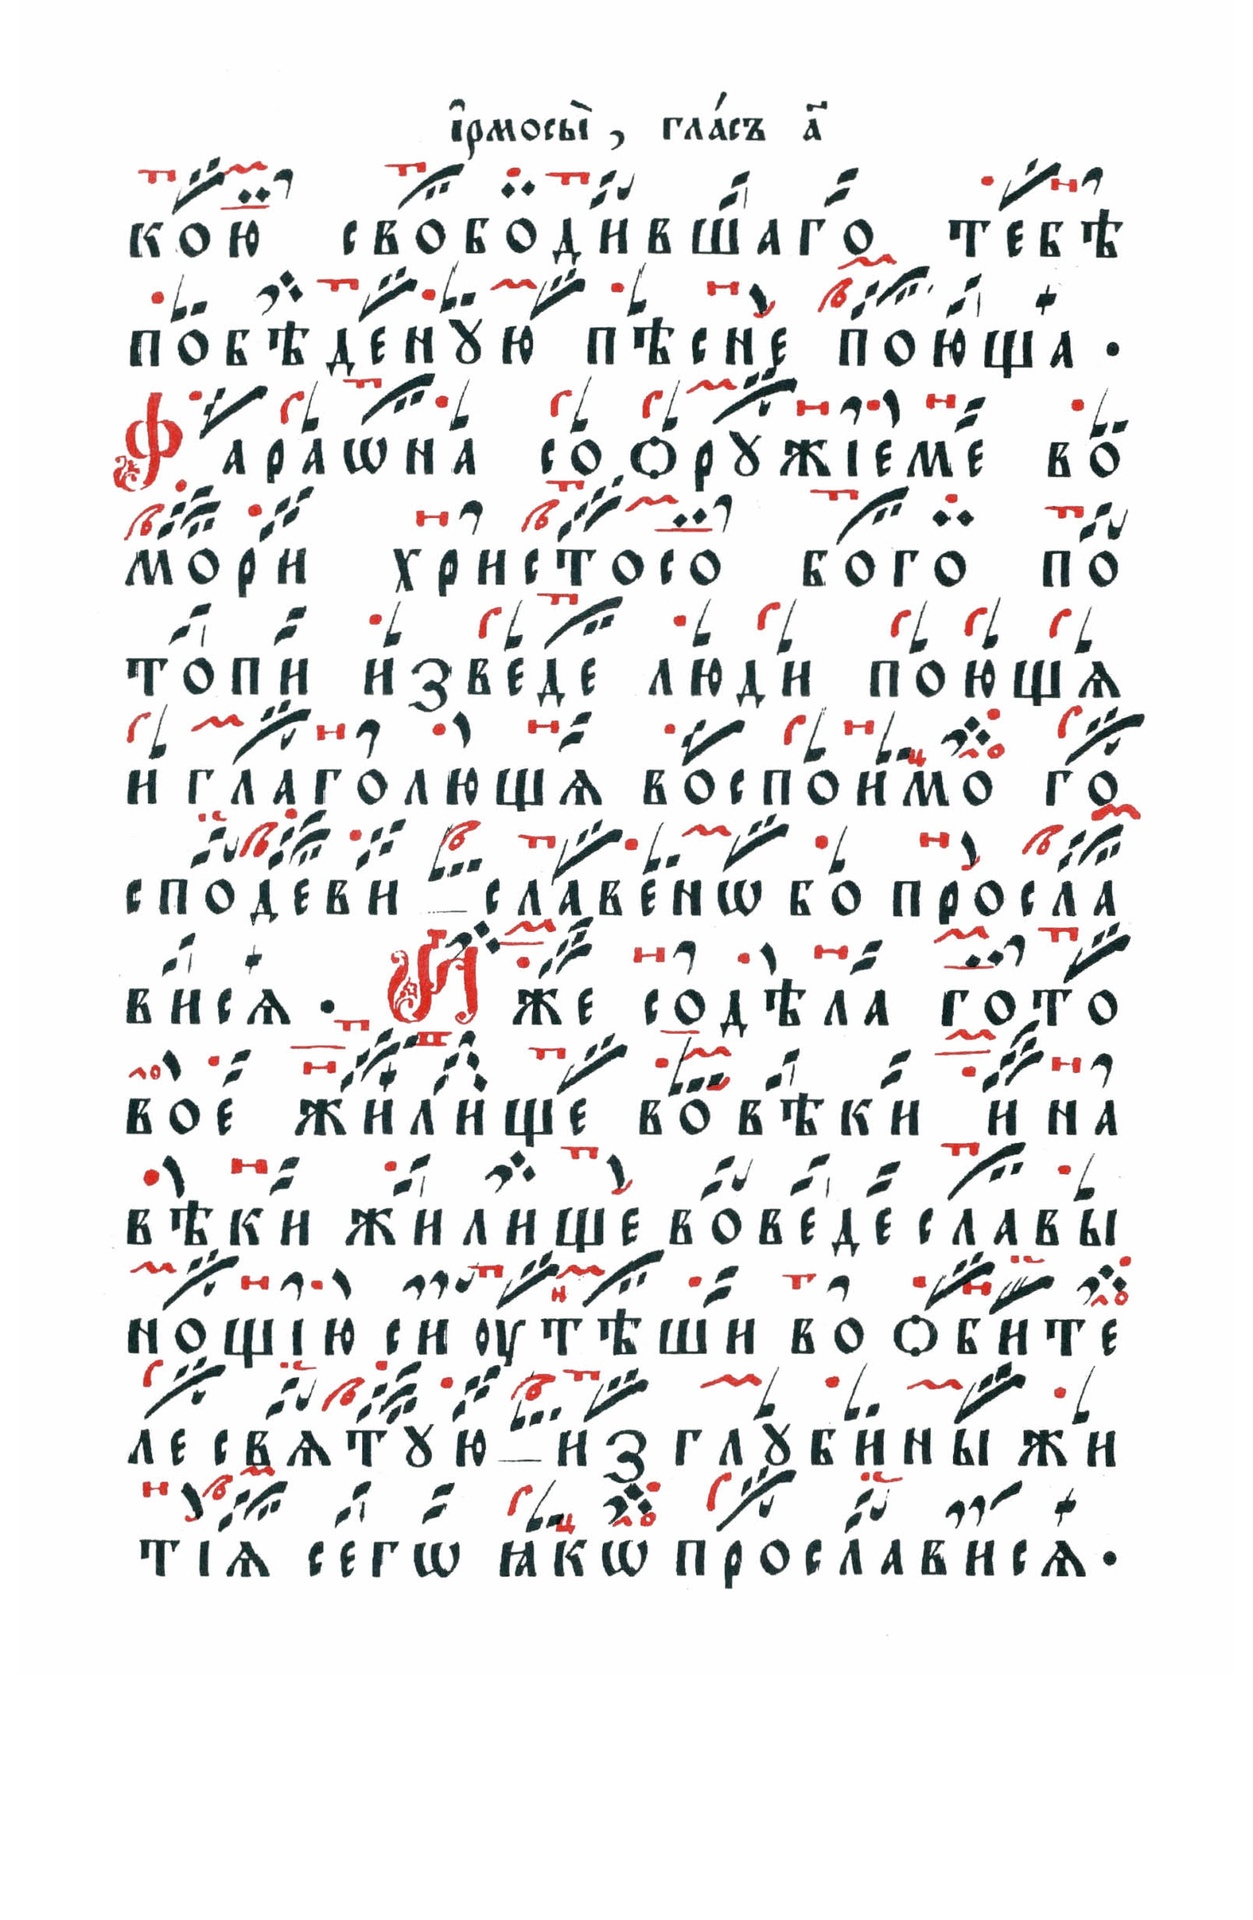 і҆рмосы̀, гла́съ а҃
кою свободившаго тебѣ
побѣденꙋю пѣсне поюща.
Фараѡна со ѻрꙋжіеме во
мори христосо бого по
топи изведе люди поющѧ
и глаголющѧ воспоимо го
сподеви славенѡ бо просла
висѧ. Иже содѣла гото
вое жилище во вѣки и на
вѣки жилище воведе славы
нощію си оутѣши во ѻбите
ле свѧтꙋю из глꙋбины жи
тіѧ сегѡ ꙗкѡ прослависѧ.